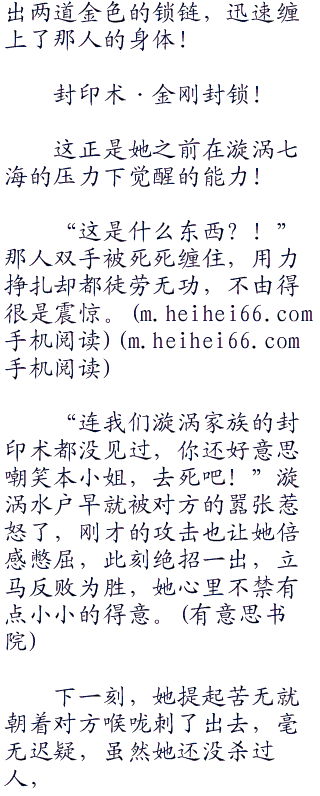 出两道金色的锁链，迅速缠
上了那人的身体！
封印术·金刚封锁！
这正是她之前在漩涡七
海的压力下觉醒的能力！
“这是什么东西？！”
那人双手被死死缠住，用力
挣扎却都徒劳无功，不由得
很是震惊。(m.heihei66.com
手机阅读)(m.heihei66.com
手机阅读)
“连我们漩涡家族的封
印术都没见过，你还好意思
嘲笑本小姐，去死吧！”漩
涡水户早就被对方的嚣张惹
怒了，刚才的攻击也让她倍
感憋屈，此刻绝招一出，立
马反败为胜，她心里不禁有
点小小的得意。(有意思书
院)
下一刻，她提起苦无就
朝着对方喉咙刺了出去，毫
无迟疑，虽然她还没杀过
人，